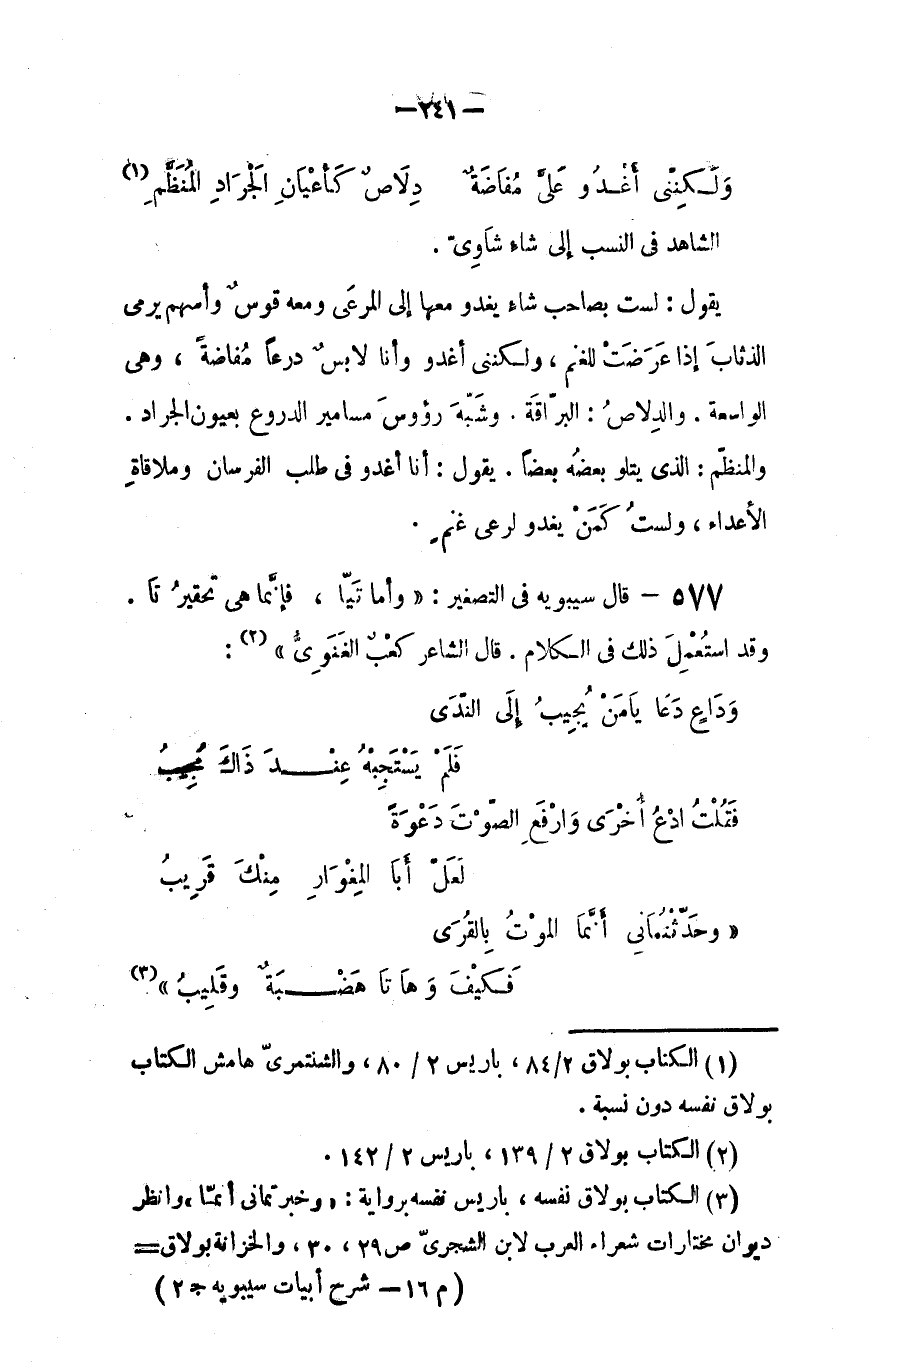 — ٢٤١ —
وَلَـكِنِّنى أَغْـدُو عَلَىَّ مُفَاضَةٌ دِلَاصٌ كَأَعْيَانِ الْجَرَادِ الْمُنَظَّمِ (١)
الشاهد فى النسب إلى شاء شَاوِىّ .
يقول : لست بصاحب شاء يغدو معها إلى المرعَى ومعه قوسٌ وأسهم يرمى
الذئابَ إذا عَرَضَتْ للغنم ، ولـكننى أغدو وأنا لابسٌ درعاً مُفاضةً ، وهى
الواسعة . والدِلاصُ : البرّاقَة . وشَبّهَ رؤوسَ مسامير الدروع بعيون الجراد .
والمنظّم : الذى يتلو بعضُه بعضاً . يقول : أنا أغدو فى طلب الفرسان وملاقاةِ
الأعداء ، ولستُ كَمَنْ يغدو لرعى غنمٍ .
٥٧٧ – قال سيبويه فى التصغير : « وأما تَيّا ، فإنَّما هى تحقيرُ تَا .
وقد استُعْمِلَ ذلك فى الـكلام . قال الشاعر كَعْبٌ الغَنَوِىُّ » (٢) :
وَدَاعٍ دَعَا يَامَنْ يُجِيبُ إِلَى النَّدَى
فَلَمْ يَسْتَجِبْهُ عِنْـــدَ ذَاكَ مُجِيبُ
فَقُلْتُ ادْعُ أُخْرَى وَارْفَعِ الصَّوْتَ دَعْوَةً
لَعَلّ أَبَا المِغْوَارِ مِنْكَ قَرِيبُ
« وحَدّثْتُمَانِي أَنَّمَا الموْتُ بِالقُرَى
فَـكَيْفَ وَهَا تَا هَضْـــبَةٌ وقَلِيبُ » (٣)
(١) الـكتاب بولاق ٨٤/٢ ، باريس ٢ / ٨٠ ، والشنتمرىّ هامش الـكتاب
بولاق نفسه دون نسبة .
(٢) الـكتاب بولاق ٢ / ١٣٩ ، باريس ٢ / ١٤٢ .
(٣) الـكتاب بولاق نفسه ، باريس نفسه برواية : « وخبرتمانى أنمّـا » وانظر
ديوان مختارات شعراء العرب لابن الشجرىّ ص ٢٩ ، ٣٠ ، والخزانة بولاق =
( م ١٦ – شرح أبيات سيبويه جـ ٢ )